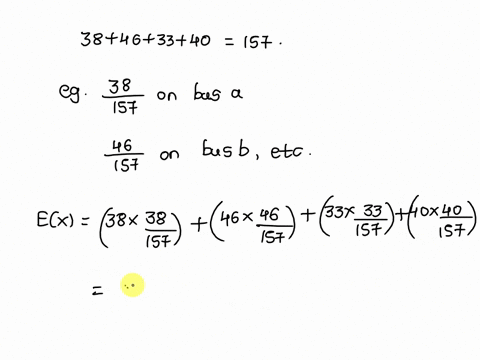 38+46+33+40 = 157.
eg. 38/157 on bus a
46/157 on bus b, etc.
E(x) = (38 × 38/157) + (46 × 46/157) + (33 × 33/157) + (40 × 40/157)
=